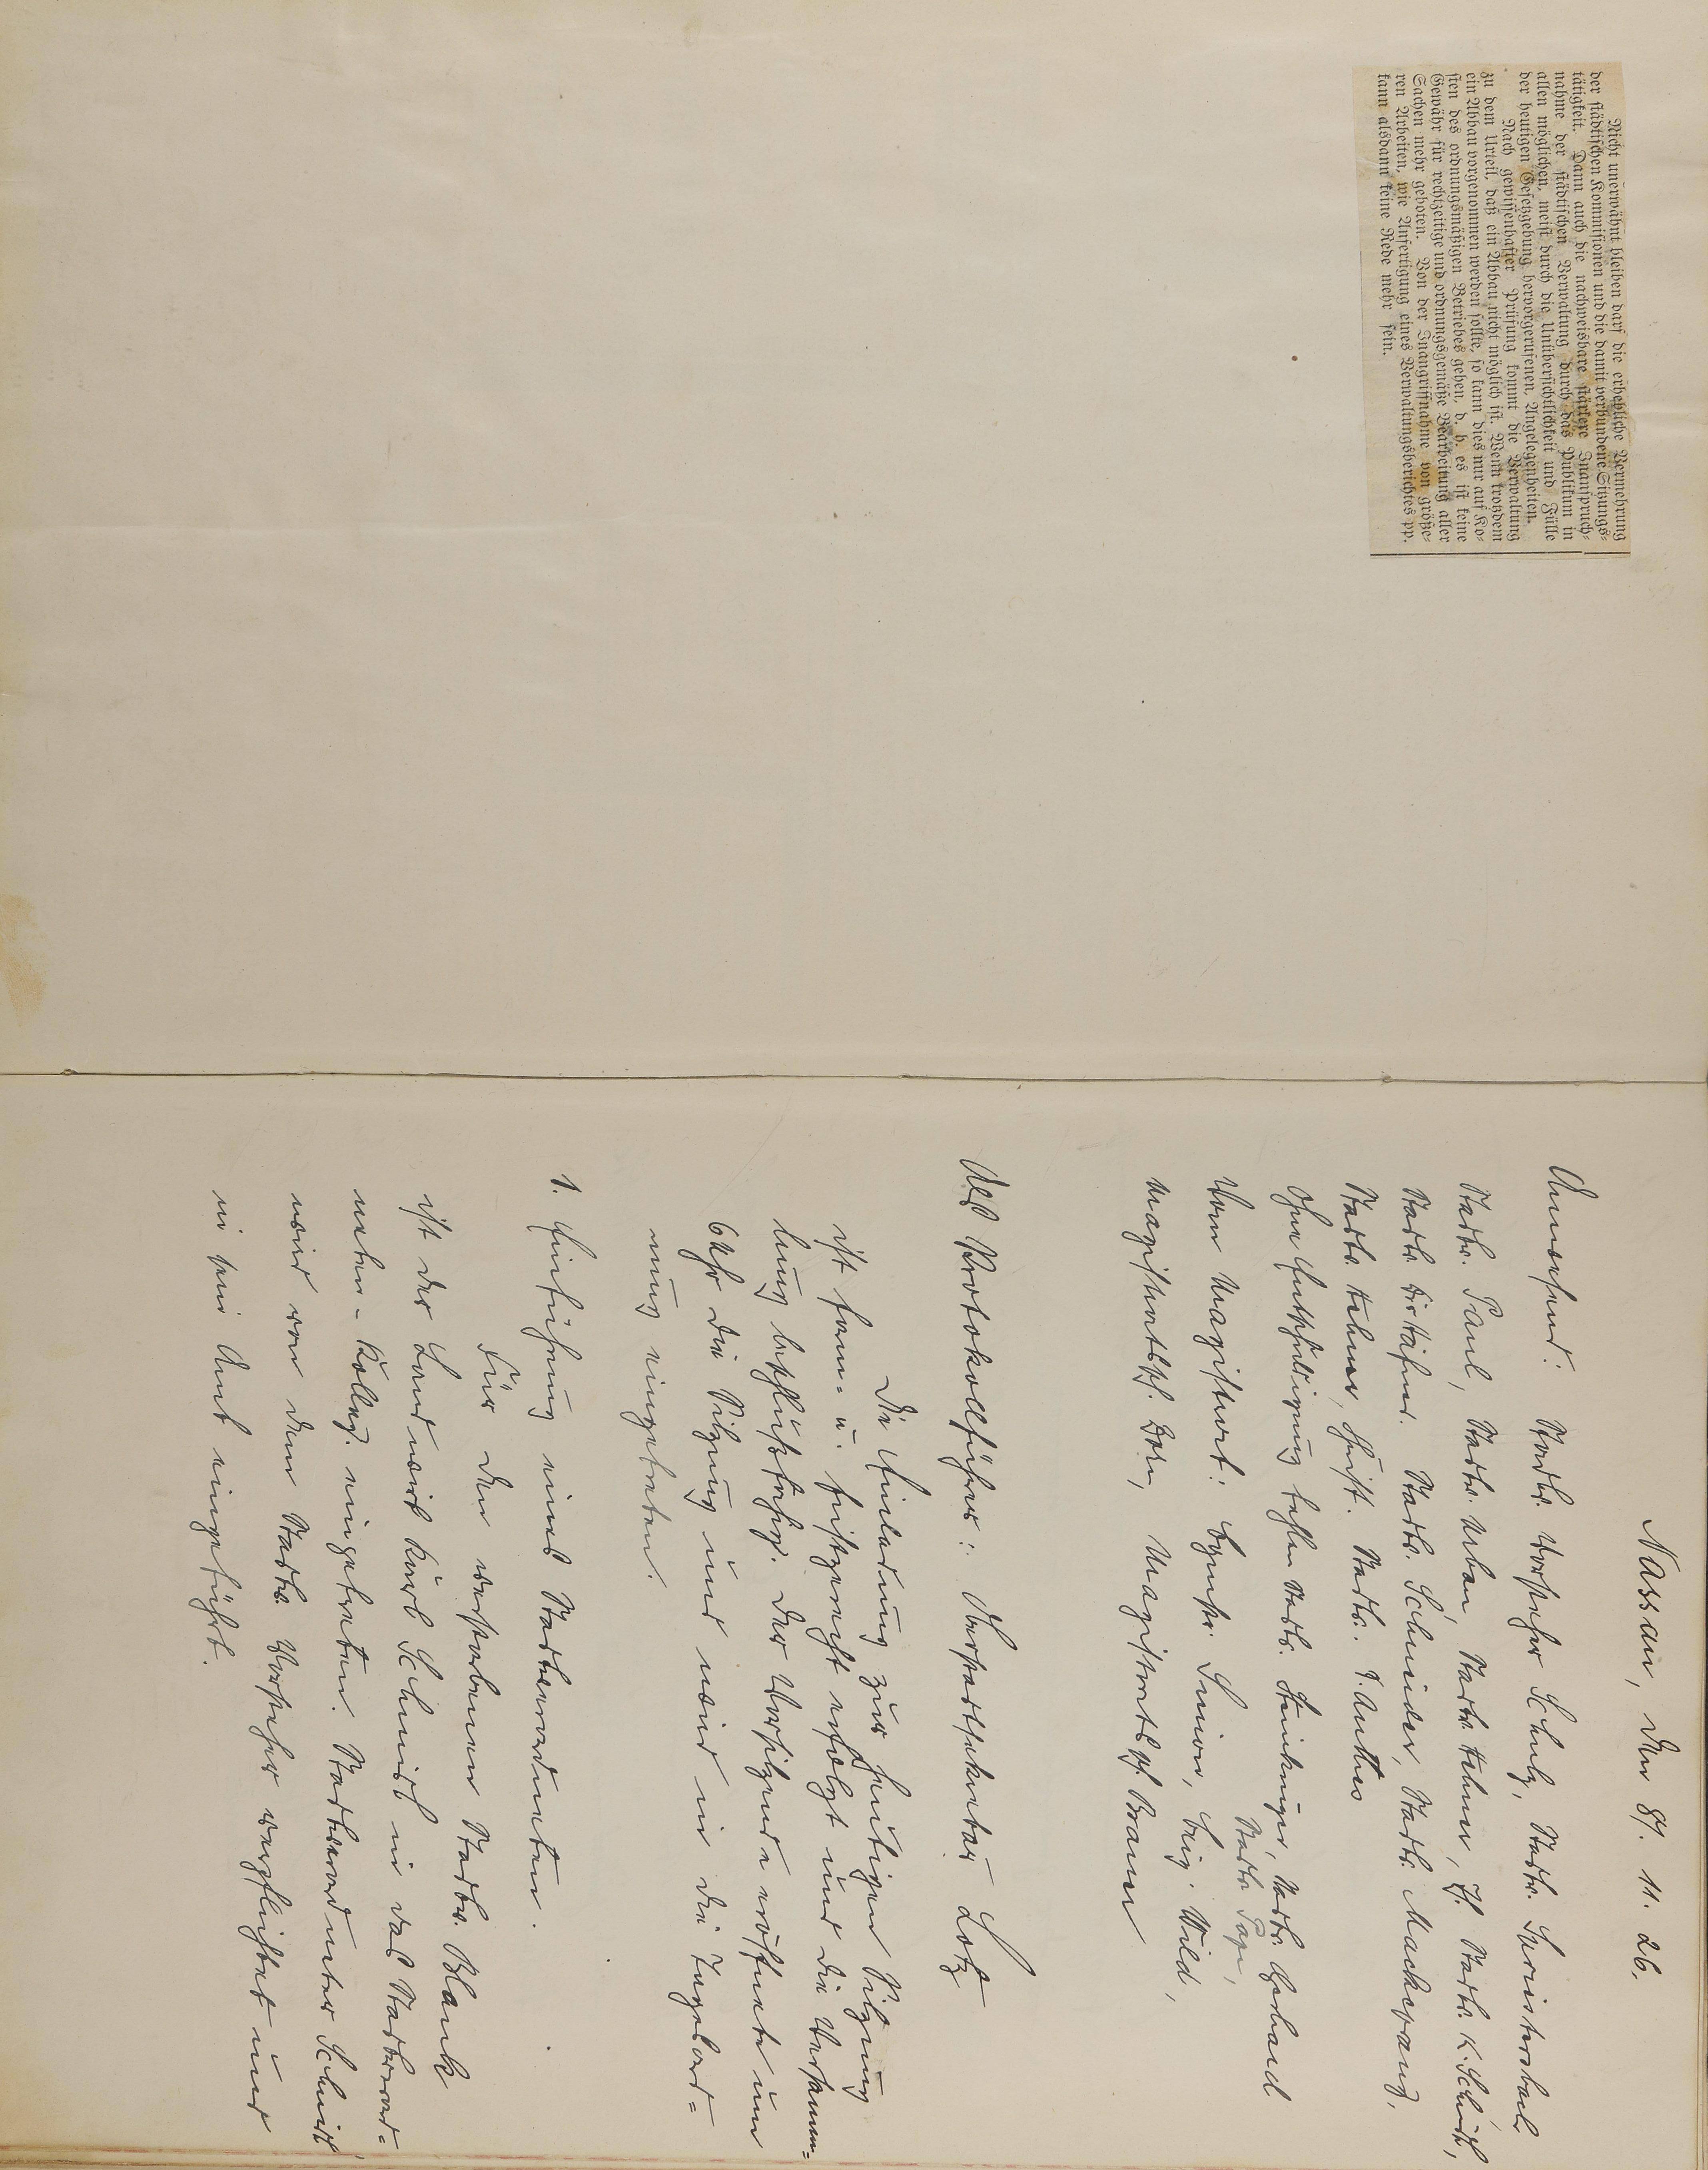 Nicht unerwähnt bleiben darf die erhebliche Vermehrung
der städtischen Kommissionen und die damit verbundene Sitzungs-
tätigkeit. Dann auch die nachweisbare stärkere Inanspruch-
nahme der städtischen Verwaltung durch das Publikum in
allen möglichen, meist durch die Unübersichtlichkeit und Fülle
der heutigen Gesetzgebung hervorgerufenen, Angelegenheiten.
Nach gewissenhafter Prüfung kommt die Verwaltung
zu dem Urteil, daß ein Abbau nicht möglich ist. Wenn trotzdem
ein Abbau vorgenommen werden sollte, so kann dies nur auf Ko-
sten des ordnungsmäßigen Betriebes gehen, d. h. es ist keine
Gewähr für rechtzeitige und ordnungsgemäße Bearbeitung aller
Sachen mehr geboten. Von der Inangriffnahme von größe-
ren Arbeiten, wie Anfertigung eines Verwaltungsberichtes pp.
kann alsdann keine Rede mehr sein.
Nassau, den 8/. 11. 26.
Anwesend: Stadtv. Vorsteher Schulz, Stadtv.
Stadtv. Paul, Stadtv. Urban, Stadtv. Stadtv. K. Schmidt,
Stadtv. Stadtv. Schneider, Stadtv. Mackeprang,
Stadtv. Stadtv. F. Anthes
Ohne Entschuldigung fehlen Stadtv. Stadtv.
Stadtv.
Vom Magistrat: Beig. Wild,
Magistratssch. Magistratssch. Braun
Als Protokollführer: Lotz
Die Einladung zur heutigen Sitzung
ist form- u. fristgerecht erfolgt und die Versamm-
lung beschlußfähig. Der Vorsitzende eröffnete um
6 Uhr die Sitzung und wird in die Tagesord-
nung eingetreten.
1. Einführung eines Stadtverordneten.
Für den verstorbenen Stadtv. Blank
ist der Landwirt Karl Schmidt in das Stadtverord-
neten-Kolleg. eingetreten. Stadtverordneter Schmidt
wird von dem Stadtv. Vorsteher verpflichtet und
in sein Amt eingeführt.